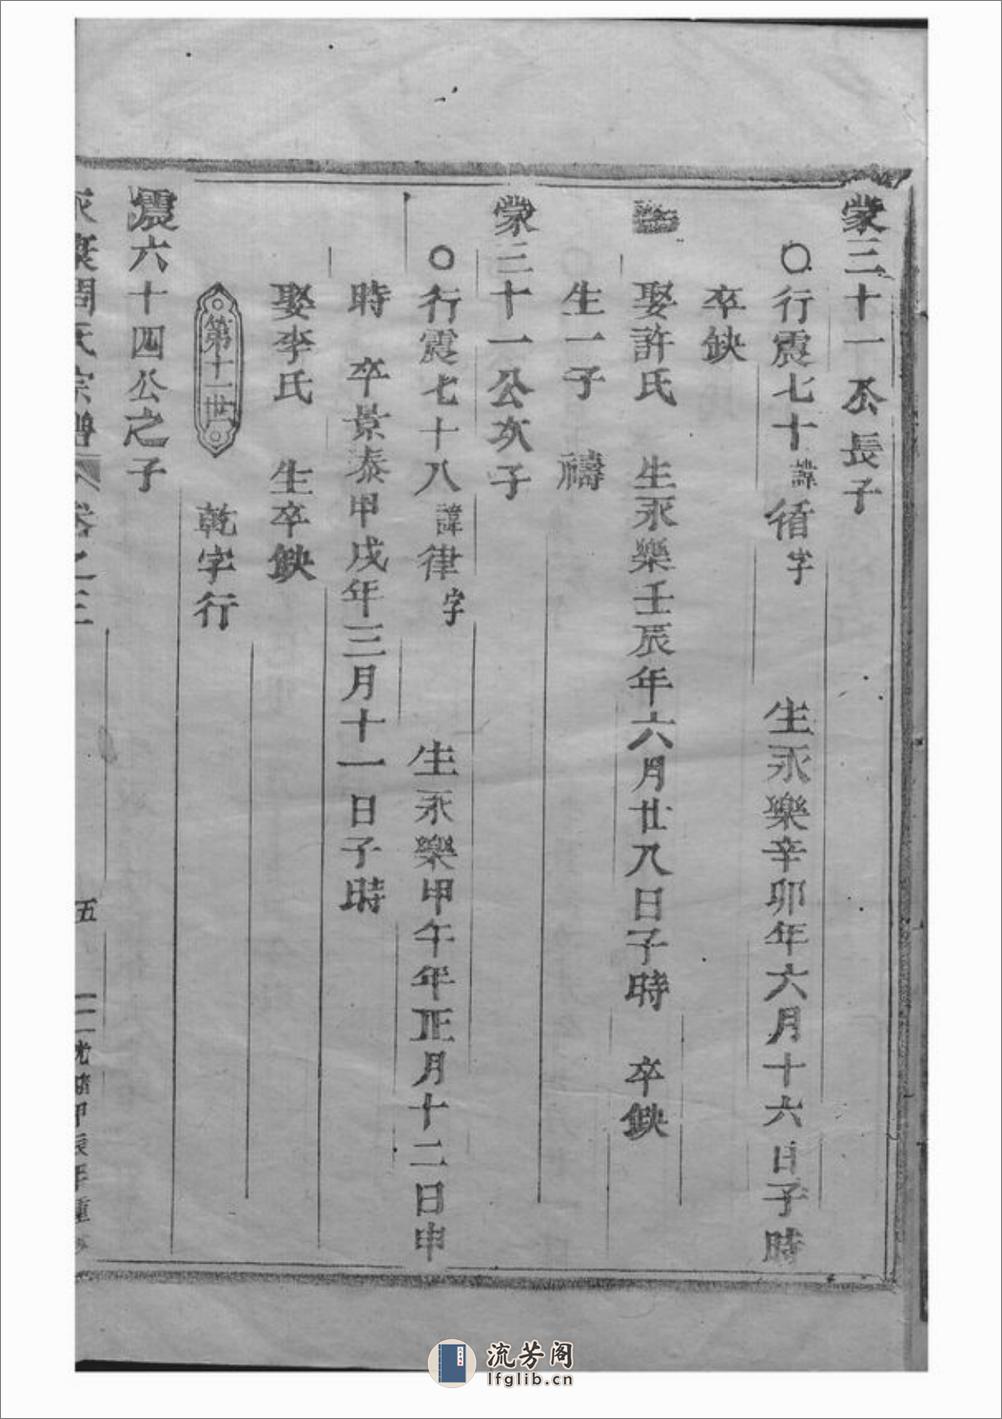 蒙三十一公長子
○行震七十諱循字　生永樂辛卯年六月十六日子時
卒缺
娶許氏　生永樂壬辰年六月廿八日子時　卒缺
生一子　禱
蒙三十一公次子
○行震七十八諱律字　生永樂甲午年正月十二日申
時　卒景泰甲戌年三月十一日子時
娶李氏　生卒缺
第十一世　乾字行
震六十四公之子
周氏宗譜　卷之三　五　光緒甲辰年重
流芳阁
lfglib.cn